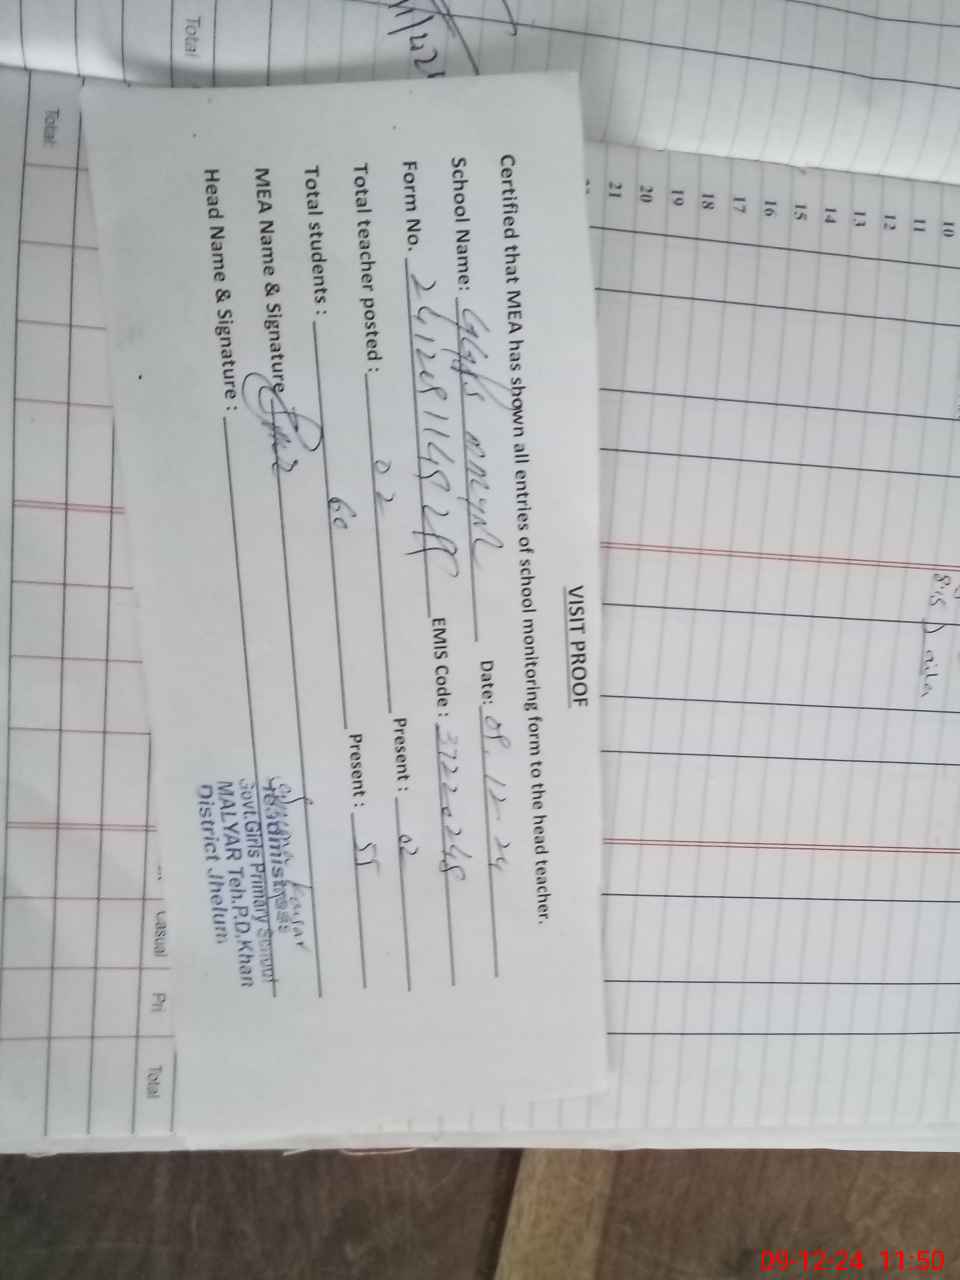 VISIT PROOF
Certified that MEA has shown all entries of school monitoring form to the head teacher.
School Name: GGPS Date: 09.12-24
Form No. EMIS Code : 37220248
Total teacher posted : 02 Present : 02
Total students : 60 Present : 55
MEA Name & Signature
Head Name & Signature :
Kausar
Headmistress
Govt.Girls Primary School
MALYAR Teh.P.D.Khan
District Jhelum
10
11
12
13
14
15
16
17
18
19
20
21
8:15
Total
Total
Casual
Pri
Total
09-12-24 11:50